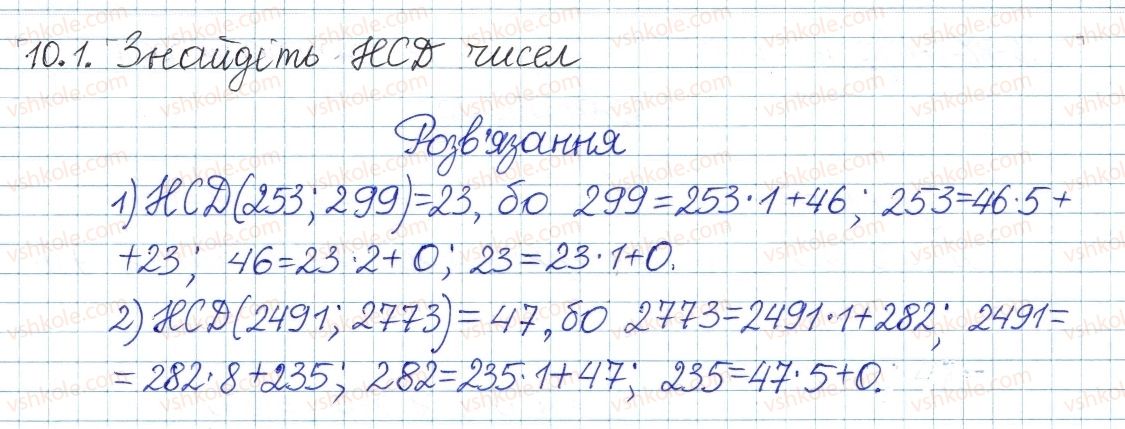 10.1. Знайдіть НСД чисел
Розв'язання
1) НСД(253; 299)=23, бо 299=253·1+46; 253=46·5+
+23; 46=23·2+0; 23=23·1+0.
2) НСД(2491; 2773)=47, бо 2773=2491·1+282; 2491=
=282·8+235; 282=235·1+47; 235=47·5+0.
vshkole.com